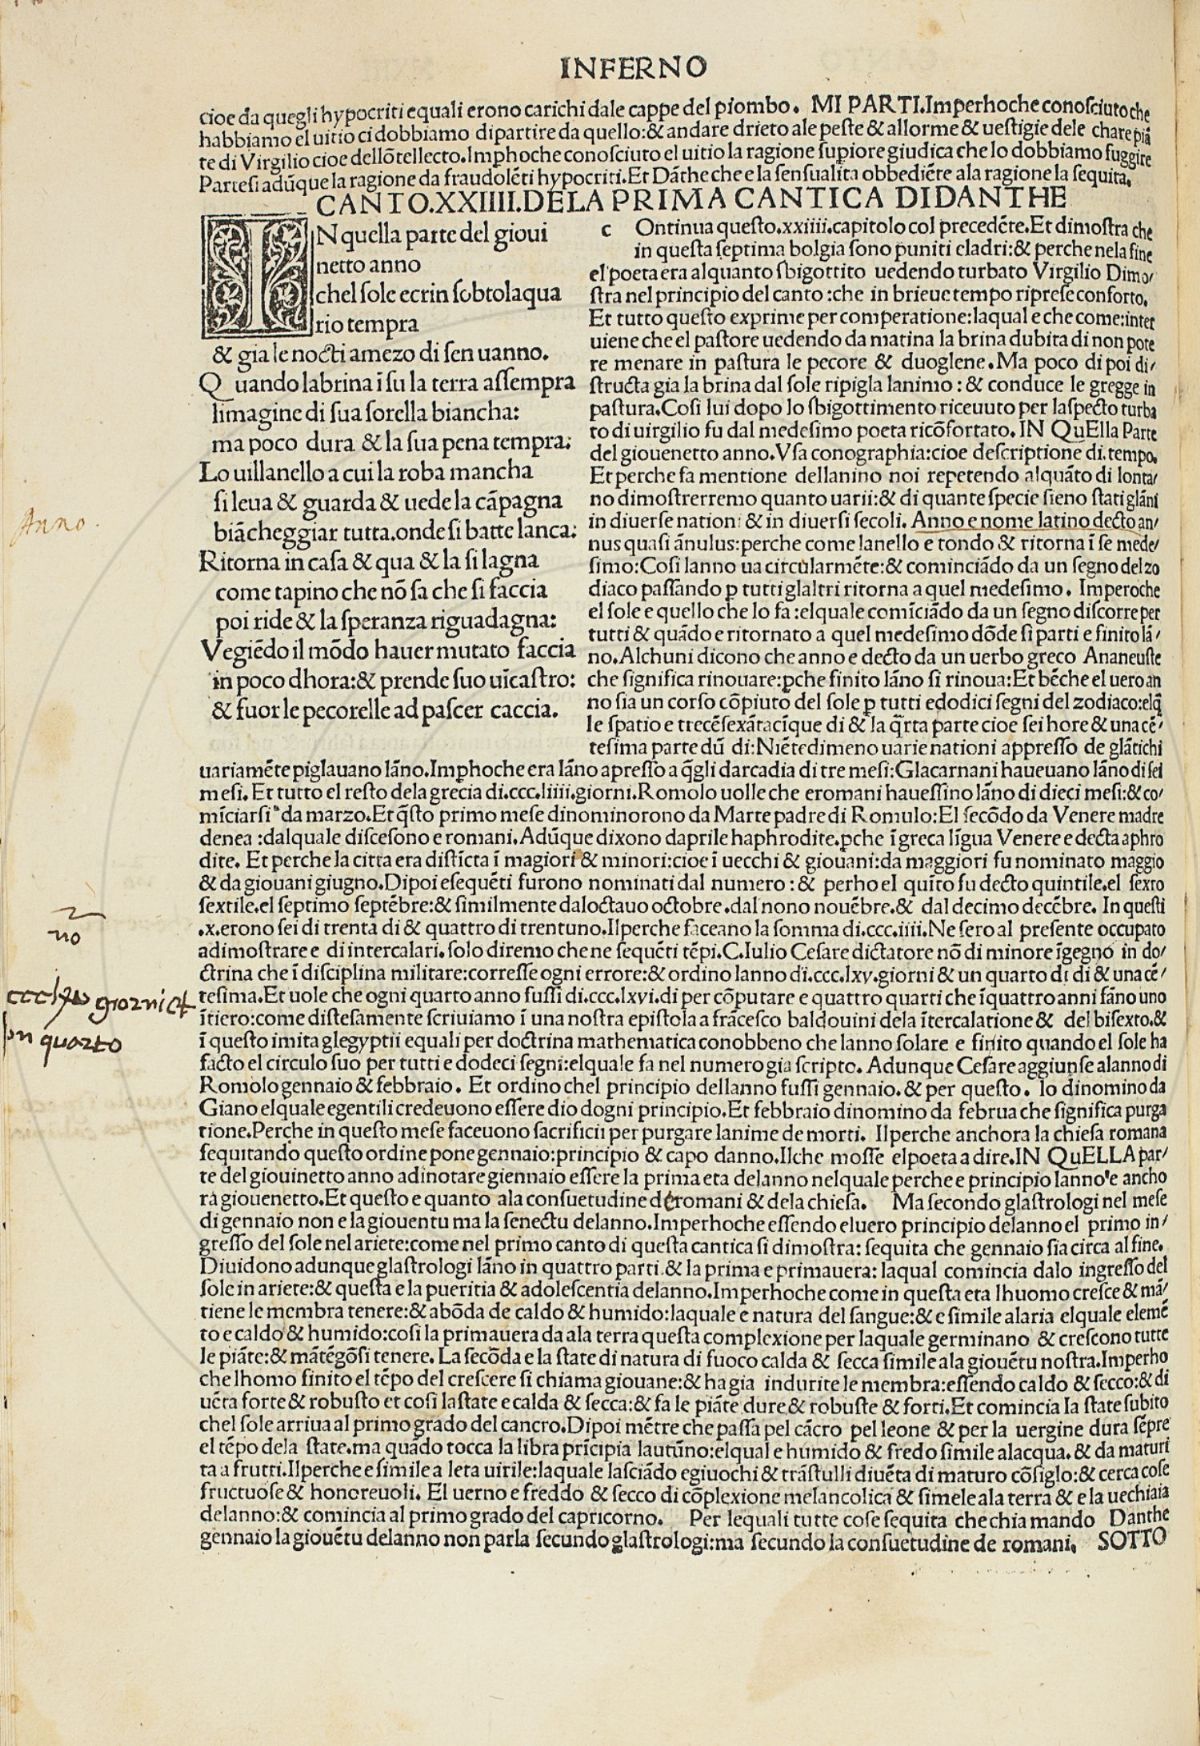 INFERNO
cioe da quegli hypocriti equali erono carichi dale cappe del piombo. MI PARTI.Imperhoche conosciuto che
habbiamo el uitio ci dobbiamo dipartire da quello:& andare drieto ale peste & allorme & uestigie dele chare piã
te di Virgilio cioe dellõtellecto.Imphoche conosciuto el uitio la ragione supiore giudica che lo dobbiamo fuggire
Partesi adũque la ragione da fraudolẽti hypocriti.Et Dãthe che e la sensualita obbediẽte ala ragione la sequita.
CANTO.XXIIII.DE LA PRIMA CANTICA DI DANTHE
IN quella parte del gioui
netto anno
chel sole ecrin sobto laqua
rio tempra
& gia le nocti amezo di sen uanno.
Quando la brina ĩ su la terra assempra
limagine di sua sorella biancha:
ma poco dura & la sua pena tempra:
Lo uillanello a cui la roba mancha
si leua & guarda & uede la cãpagna
biãcheggiar tutta.onde si batte lanca:
Ritorna in casa & qua & la si lagna
come tapino che nõ sa che si faccia
poi ride & la speranza riguadagna:
Vegiẽdo il mõdo hauer mutato faccia
in poco dhora:& prende suo uĩcastro:
& fuor le pecorelle ad pascer caccia.
c Ontinua questo.xxiiii.capitolo col precedẽte.Et dimostra che
in questa septima bolgia sono puniti eladri:& perche nela fine
el poeta era alquanto sbigottito uedendo turbato Virgilio Dimo/
stra nel principio del canto:che in brieue tempo riprese conforto.
Et tutto questo exprime per comperatione:laqual e che come:inter
uiene che el pastore uedendo da matina la brina dubita di non pote
re menare in pastura le pecore & duoglene.Ma poco di poi di/
structa gia la brina dal sole ripigla lanimo:& conduce le gregge in
pastura.Cosi lui dopo lo sbigottimento riceuuto per laspecto turba
to di uirgilio fu dal medesimo poeta ricõfortato.IN QuElla Parte
del giouenetto anno.Vsa conographia:cioe descriptione di.tempo.
Et perche fa mentione dellanino noi repetendo alquãto di lonta/
no dimostrerremo quanto uarii:& di quante specie sieno stati glãni
in diuerse nationi & in diuersi secoli. Anno e nome latino decto an/
nus quasi ãnulus:perche come lanello e tondo & ritorna ĩ se mede/
simo:Cosi lanno ua circularmẽte:& cominciãdo da un segno del zo
diaco passando p tutti glaltri ritorna a quel medesimo. Imperoche
el sole e quello che lo fa:elquale comĩciãdo da un segno discorre per
tutti & quãdo e ritornato a quel medesimo dõde si parti e finito lã/
no.Alchuni dicono che anno e decto da un uerbo greco Ananeuste
che significa rinouare:pche finito lãno si rinoua:Et bẽche el uero an
no sia un corso cõpiuto del sole p tutti edodici segni del zodiaco:elq̃
le spatio e trecẽsexãtacĩque di & la q̃rta parte cioe sei hore & una cẽ/
tesima parte dũ di:Niẽtedimeno uarie nationi appresso de glãtichi
uariamẽte piglauano lãno.Imphoche era lãno apresso a q̃gli darcadia di tre mesi:Glacarnani haueuano lãno di sei
mesi. Et tutto el resto dela grecia di.ccc.liiii.giorni.Romolo uolle che eromani hauessino lãno di dieci mesi:& co/
mĩciarsi da marzo.Et q̃sto primo mese dinominorono da Marte padre di Romulo:El secõdo da Venere madre
denea:dalquale discesono e romani.Adũque dixono daprile haphrodite.pche ĩ greca lĩgua Venere e decta aphro
dite. Et perche la citta era distĩcta ĩ magiori & minori:cioe ĩ uecchi & giouani:da maggiori fu nominato maggio
& da giouani giugno.Dipoi esequẽti furono nominati dal numero:& perho el quĩto fu decto quintile.el sexto
sextile.el septimo septẽbre:& similmente daloctauo octobre.dal nono nouẽbre.& dal decimo decẽbre. In questi
.x.erono sei di trenta di & quattro di trentuno.Ilperche faceano la somma di.ccc.iiii.Ne sero al presente occupato
adimostrare e di intercalari.solo diremo che ne sequẽti tẽpi.C.Iulio Cesare dictatore nõ di minore ĩgegno in do/
ctrina che ĩ disciplina militare:corresse ogni errore:& ordino lanno di.ccc.lxv.giorni & un quarto di di & una cẽ/
tesima.Et uole che ogni quarto anno fussi di.ccc.lxvi.di per cõputare e quattro quarti che ĩ quattro anni fãno uno
ĩtiero:come distesamente scriuiamo ĩ una nostra epistola a frãcesco baldouini dela ĩtercalatione & del bisexto.&
ĩ questo imita glegyptii equali per doctrina mathematica conobbeno che lanno solare e finito quando el sole ha
facto el circulo suo per tutti e dodeci segni:elquale fa nel numero gia scripto. Adunque Cesare aggiunse alanno di
Romolo gennaio & febbraio. Et ordino chel principio dellanno fussi gennaio.& per questo. lo dinomino da
Giano elquale egentili credeuono essere dio dogni principio.Et febbraio dinomino da februa che significa purga
tione.Perche in questo mese faceuono sacrificii per purgare lanime de morti. Ilperche anchora la chiesa romana
sequitando questo ordine pone gennaio:principio & capo danno.Ilche mosse elpoeta a dire.IN QuELLA par/
te del giouinetto anno adinotare giennaio essere la prima eta delanno nelquale perche e principio lanno'e ancho
ra giouenetto.Et questo e quanto ala consuetudine de romani & dela chiesa. Ma secondo glastrologi nel mese
di gennaio non e la giouentu ma la senectu delanno.Imperhoche essendo eluero principio delanno el primo in/
gresso del sole nel ariete:come nel primo canto di questa cantica si dimostra: sequita che gennaio sia circa al fine.
Diuidono adunque glastrologi lãno in quattro parti.& la prima e primauera: laqual comincia dalo ingresso del
sole in ariete:& questa e la pueritia & adolescentia delanno.Imperhoche come in questa eta lhuomo cresce & mã/
tiene le membra tenere:& abõda de caldo & humido:laquale e natura del sangue:& e simile alaria elquale elemẽ
to e caldo & humido:cosi la primauera da ala terra questa complexione per laquale germinano & crescono tutte
le piãte:& mãtẽgõsi tenere. La secõda e la state di natura di fuoco calda & secca simile ala giouẽtu nostra.Imperho
che lhomo finito el tẽpo del crescere si chiama giouane:& ha gia indurite le membra:essendo caldo & secco:& di
uẽta forte & robusto et cosi lastate e calda & secca:& fa le piãte dure & robuste & forti.Et comincia la state subito
chel sole arriua al primo grado del cancro.Dipoi mẽtre che passa pel cãcro pel leone & per la uergine dura sẽpre
el tẽpo dela state.ma quãdo tocca la libra prĩcipia lautũno:elqual e humido & fredo simile alacqua.& da maturi
ta a frutti.Ilperche e simile a leta uirile:laquale lasciãdo egiuochi & trãstulli diuẽta di maturo cõsiglo:& cerca cose
fructuose & honoreuoli. El uerno e freddo & secco di cõplexione melancolica & simele ala terra & e la uechiaia
delanno:& comincia al primo grado del capricorno. Per lequali tutte cose sequita che chiamando Danthe
gennaio la giouẽtu delanno non parla secundo glastrologi:ma secundo la consuetudine de romani. SOTTO
Anno.
no
giorni et
un quarto